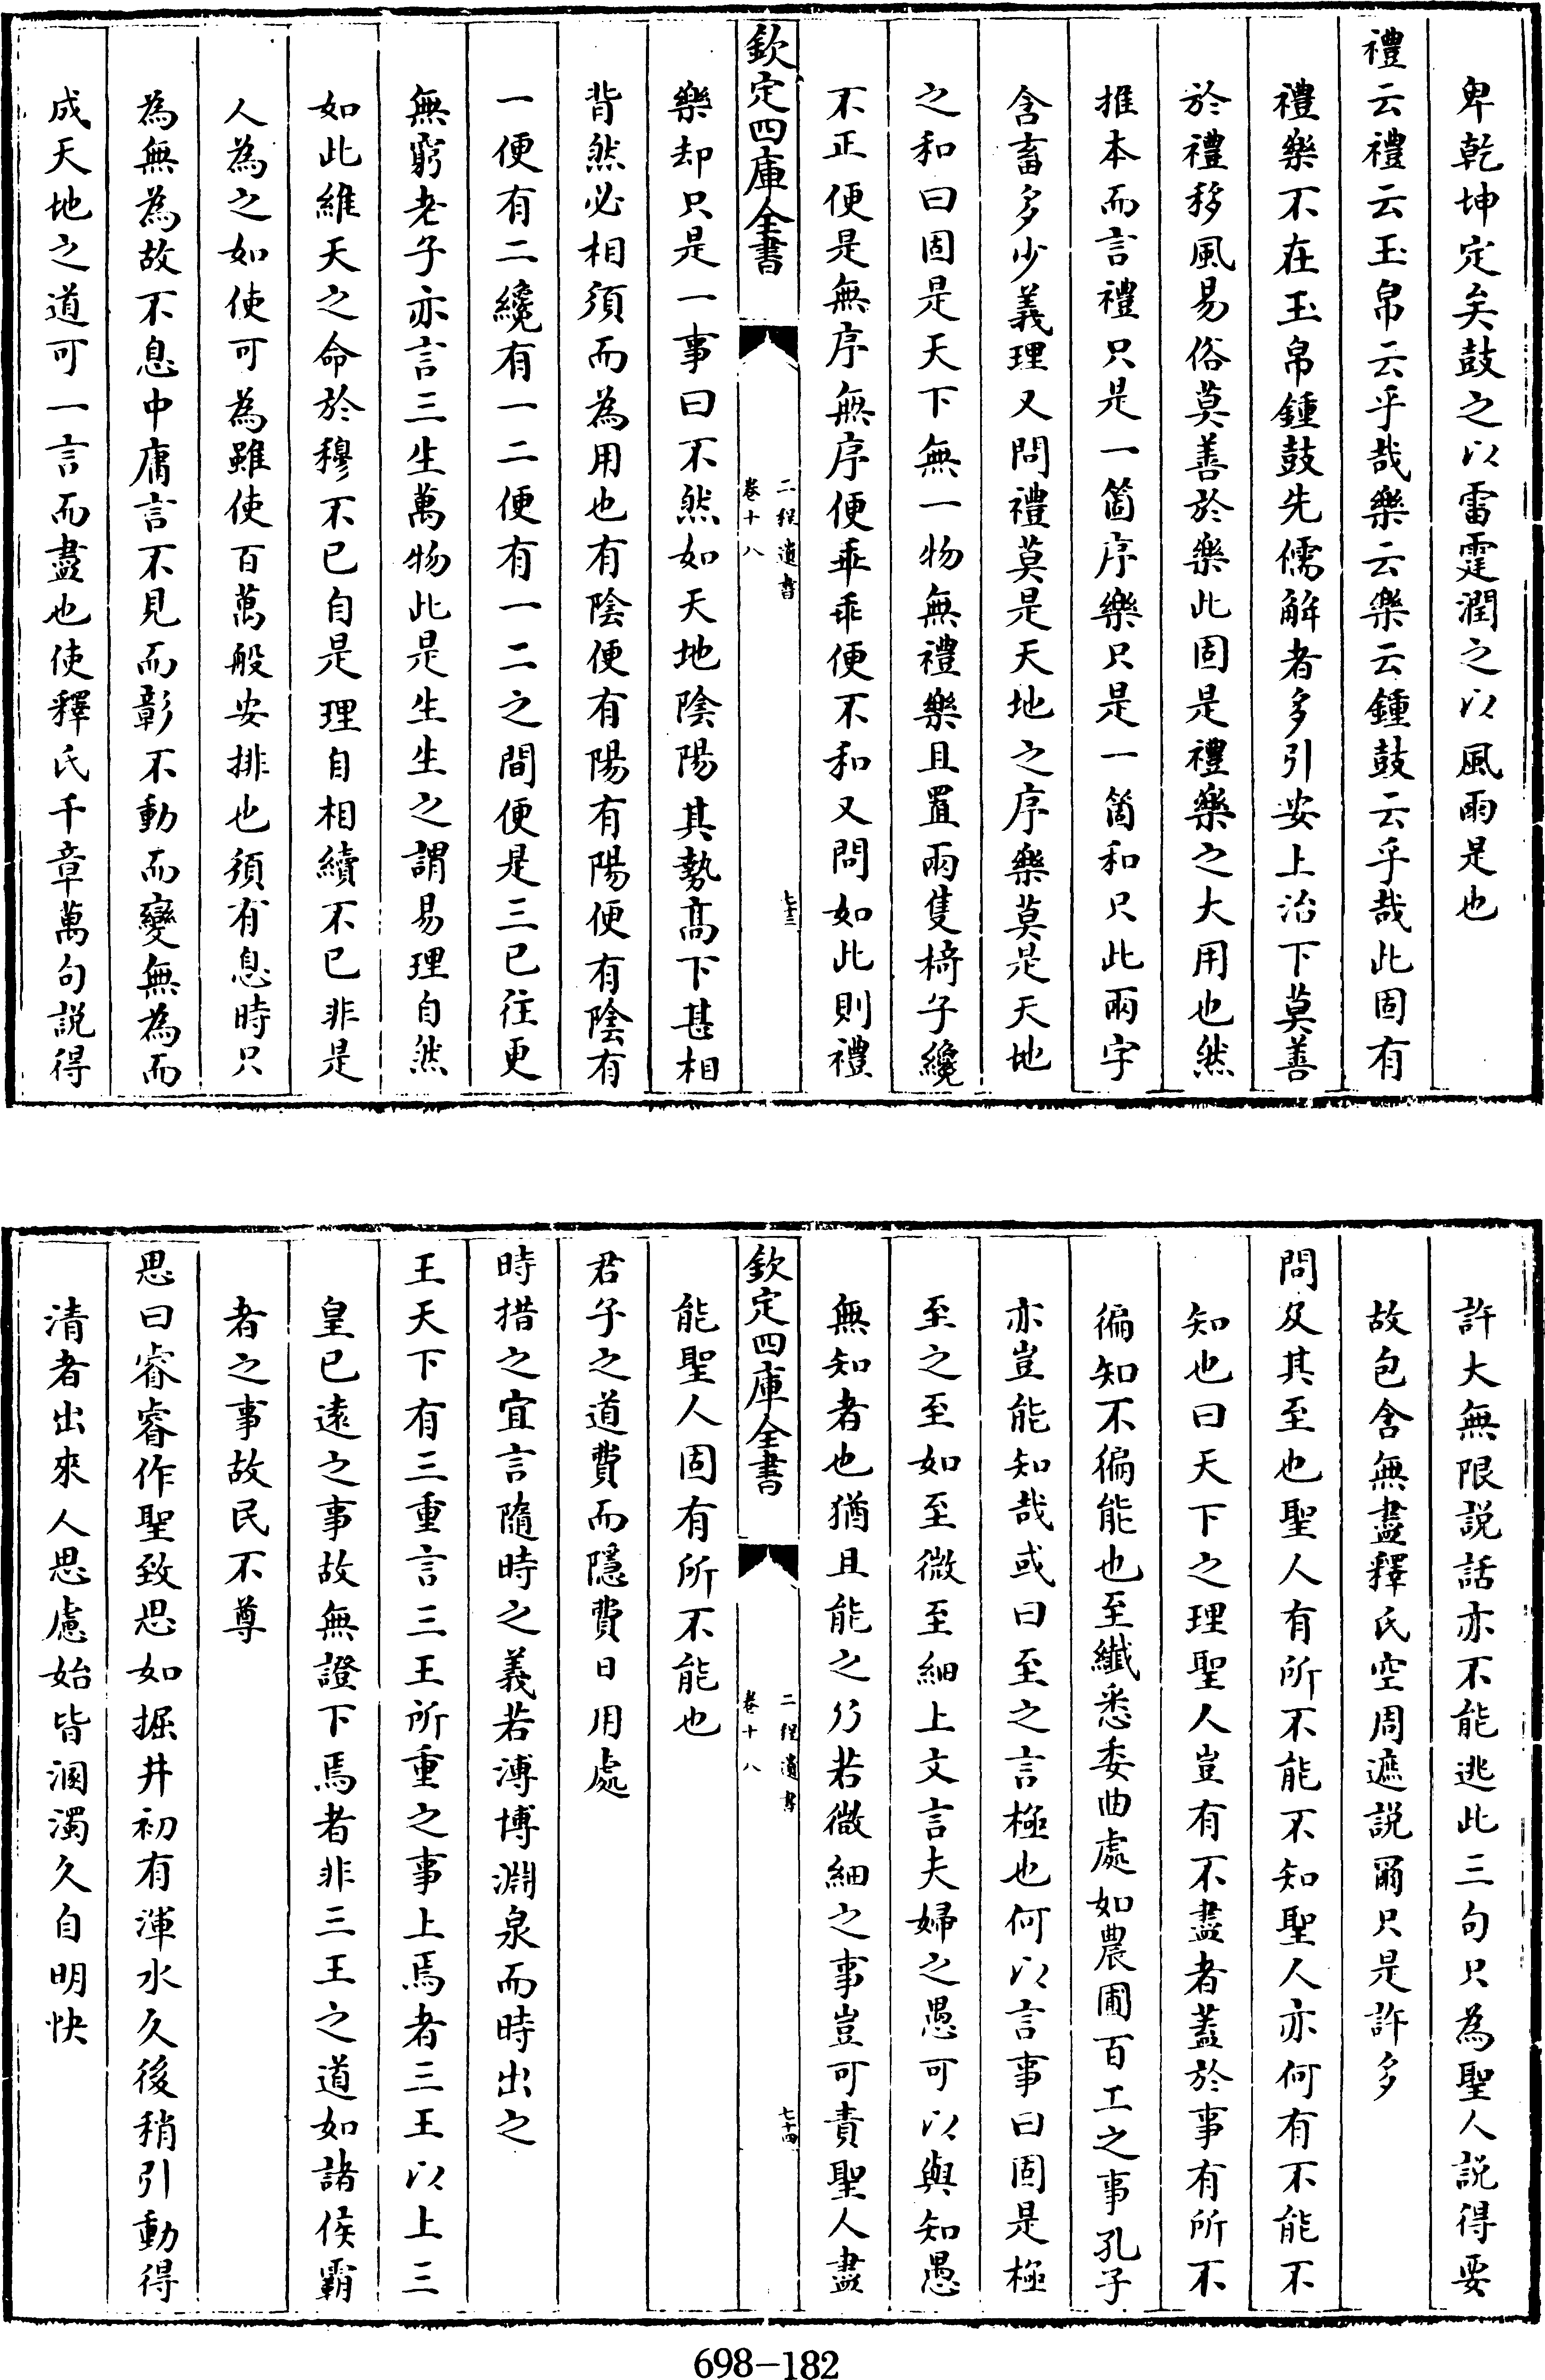 卑乾坤定矣鼓之以雷霆潤之以風雨是也
禮云禮云玉帛云乎哉樂云樂云鍾鼓云乎哉此固有
禮樂不在玉帛鍾鼓先儒解者多引安上治下莫善
於禮移風易俗莫善於樂此固是禮樂之大用也然
推本而言禮只是一箇序樂只是一箇和只此兩字
含畜多少義理又問禮莫是天地之序樂莫是天地
之和曰固是天下無一物無禮樂且置兩隻椅子纔
不正便是無序無序便乖乖便不和又問如此則禮
欽定四庫全書
二程遺書
卷十八
七十三
樂却只是一事曰不然如天地陰陽其勢髙下甚相
背然必相須而為用也有陰便有陽有陽便有陰有
一便有二纔有一二便有一二之間便是三已往更
無窮老子亦言三生萬物此是生生之謂易理自然
如此維天之命於穆不已自是理自相續不已非是
人為之如使可為雖使百萬般安排也須有息時只
為無為故不息中庸言不見而彰不動而變無為而
成天地之道可一言而盡也使釋氏千章萬句説得
許大無限説話亦不能逃此三句只為聖人説得要
故包含無盡釋氏空周遮説爾只是許多
問及其至也聖人有所不能不知聖人亦何有不能不
知也曰天下之理聖人豈有不盡者蓋於事有所不
徧知不徧能也至纖悉委曲處如農圃百工之事孔子
亦豈能知哉或曰至之言極也何以言事曰固是極
至之至如至微至細上文言夫婦之愚可以與知愚
無知者也猶且能之乃若微細之事豈可責聖人盡
欽定四庫全書
二程遺書
卷十八
七十四
能聖人固有所不能也
君子之道費而隱費日用處
時措之宜言隨時之義若溥博淵泉而時出之
王天下有三重言三王所重之事上焉者三王以上三
皇已逺之事故無證下焉者非三王之道如諸侯霸
者之事故民不尊
思曰睿睿作聖致思如掘井初有渾水久後稍引動得
清者出來人思慮始皆溷濁久自明快
698-182